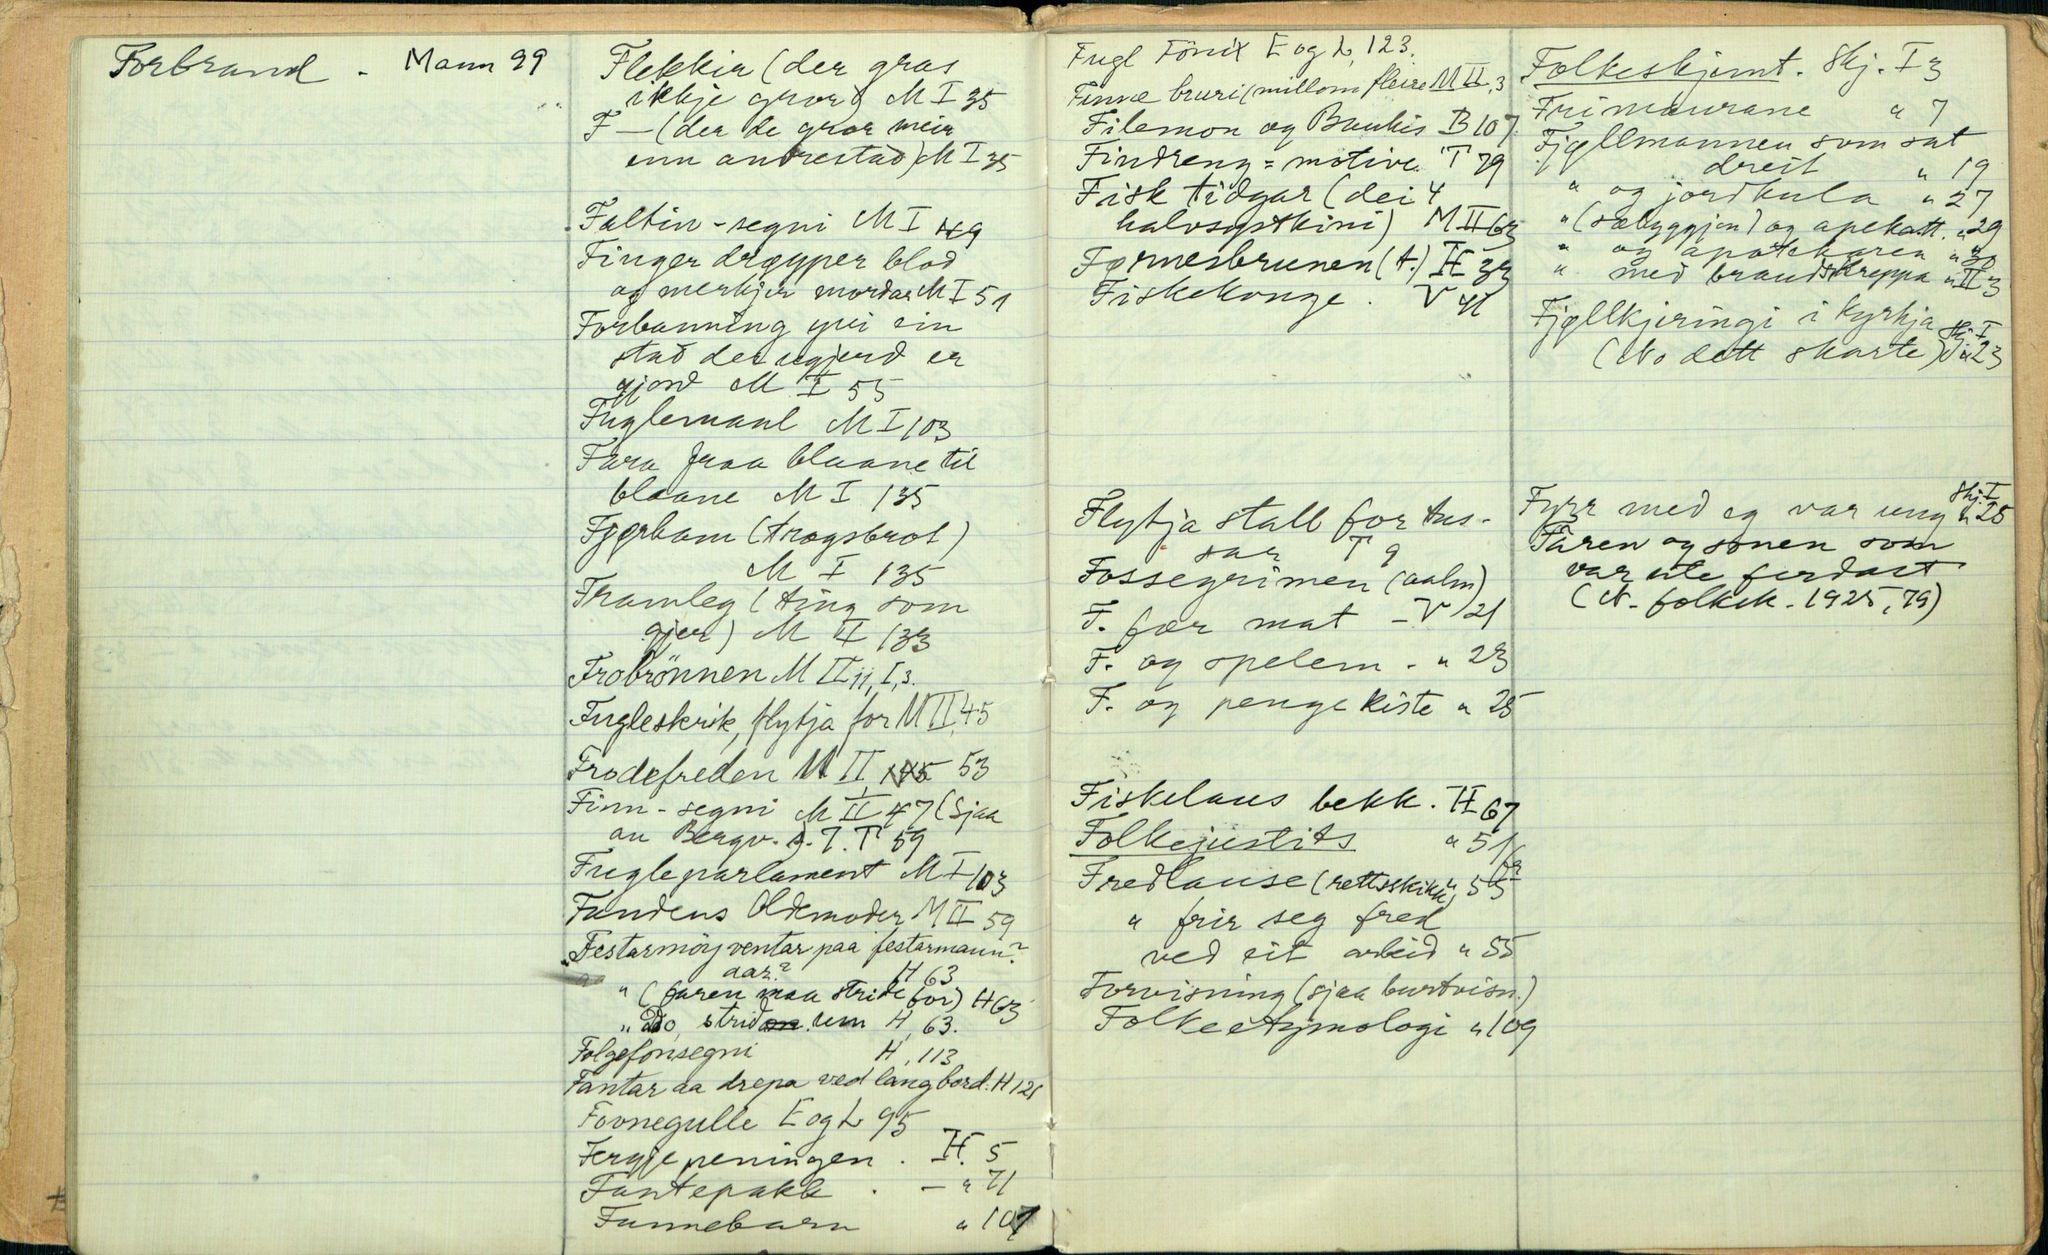 Forbrand - Mann 99
Flekkir (der gras
ikkje gror) M I 35
F — (der de gror meir
enn andrestad) M I 35
Faltin-segni M I 49
Finger drypper blod
og merkjer mordar M I 51
Forbanning yvi ein
stad der ugjerd er
gjord M I 55
Fuglemaal M I 103
Fara fraa blaane til
blaane M I 135
Fjørham (trogsbrot)
M I 135
Framleg (ting som
gjer) M II 133
Frobrönnen M II 11, I, 3.
Fugleskrik, flytja for M II, 45
Frodefreden M II, 53
Finn-segni M II 47 (Sjaa
au Bergv. J. T. T 59
Fugleparlament M I 103
Fundens Oldemoder M II 59
Festarmöy ventar paa festarmann?
aar? H 63
" (faren maa stride for) H 63
" Do, strid um H, 63.
Folgefonsegni H, 113
Fantar aa drepa ved langbord. H 121
Fovnegulle E og L 95
Ferjepeningen . H. 5
Fantepakk . — " 71
Funnebarn " 107
Fugl Fönix E og L, 123.
Finne bruri (millom fleire M II, 3
Filemon og Baukis B 107
Findreng = motive T 79
Fisk tidgar (dei 4
halvsystkini) M II 63
Førnesbrunen (t.) H 33
Fiskekonge . V 41
Flytja stall for tus-
sar T 9
Fossegrimen (aalm)
F. fær mat - V 21
F. og spelem. - " 23
F. og pengekiste " 25
Fiskelaus bekk. H 67
Folkejustits " 51
Fredlause (rettsskikk) " 55
" frir seg fred
ved eit arbeid " 55
Forvisning (sjaa burtvisn.)
Folkeetymologi " 109
Folkeskjemt. Skj. I 3
Frimaurane " 7
Fjøllmannen som sat
dreit " 19
" og jordkula " 27
" (sæbyggjen) og apekatt. " 29
" og apotekaren " 30
" med brandskreppa " II 3
Fjøllkjeringi i kyrkja Skj. I
(No dett skarte) " 23
Fyrr med eg var ung Skj. I " 25
Faren og sonen som
var ute ferdast
(N. folkek. 1925, 79)